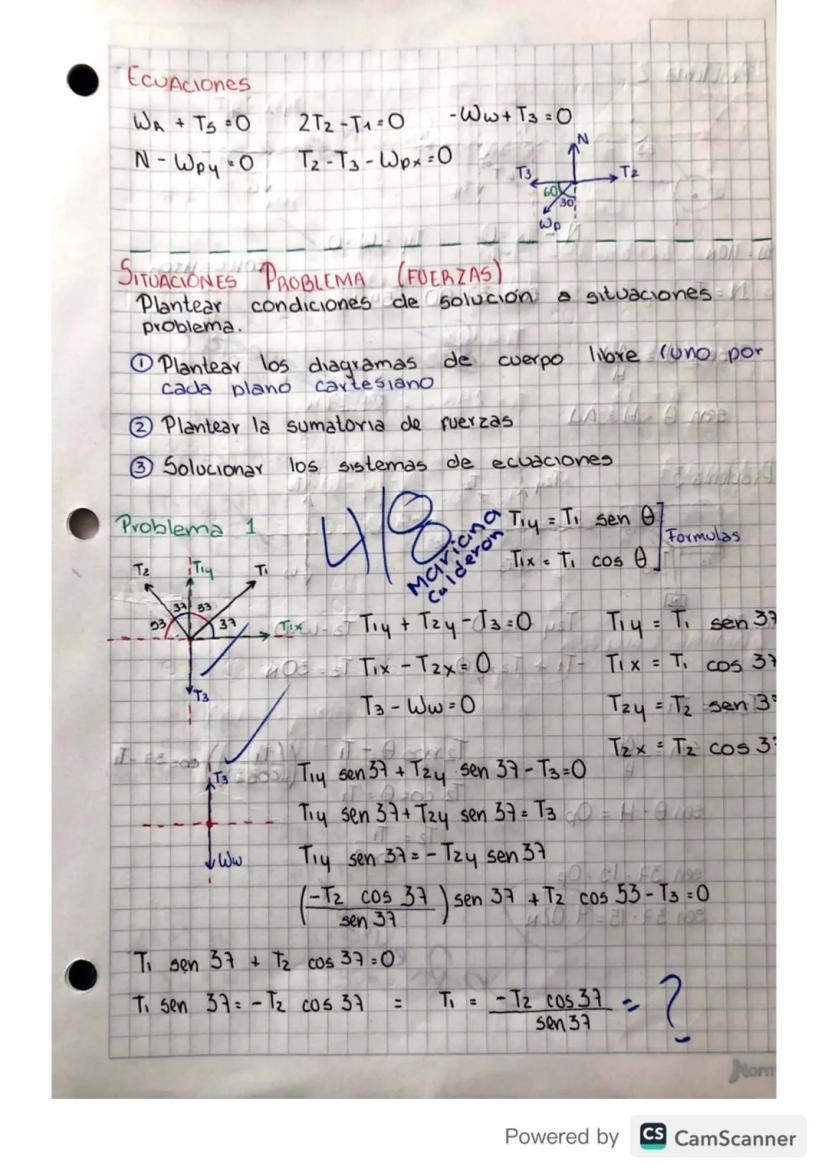 ECUACIONES
WA + T5 = 0 2T2 - T1 = 0 -Ww + T3 = 0
N - Wpy = 0 T2 - T3 - Wpx = 0
N
T3 T2
60 30
Wp
SITUACIONES PROBLEMA (FUERZAS)
Plantear condiciones de solución a situaciones
problema.
① Plantear los diagramas de cuerpo libre (uno por
cada plano cartesiano
② Plantear la sumatoria de fuerzas
③ Solucionar los sistemas de ecuaciones
Problema 1
4/8
Mariana
Calderon
T1y = T1 sen θ
T1x = T1 cos θ
Formulas
T2 T1y T1
53 37 53 37
T1x
T3
T1y + T2y - T3 = 0 T1y = T1 sen 37
T1x - T2x = 0 T1x = T1 cos 37
T3 - Ww = 0 T2y = T2 sen 3
T2x = T2 cos 3
T3
Ww
T1y sen 37 + T2y sen 37 - T3 = 0
T1y sen 37 + T2y sen 37 = T3
T1y sen 37 = - T2y sen 37
(-T2 cos 37 / sen 37) sen 37 + T2 cos 53 - T3 = 0
T1 sen 37 + T2 cos 37 = 0
T1 sen 37 = - T2 cos 37 = T1 = -T2 cos 37 / sen 37 = ?
Norm
Powered by CS CamScanner